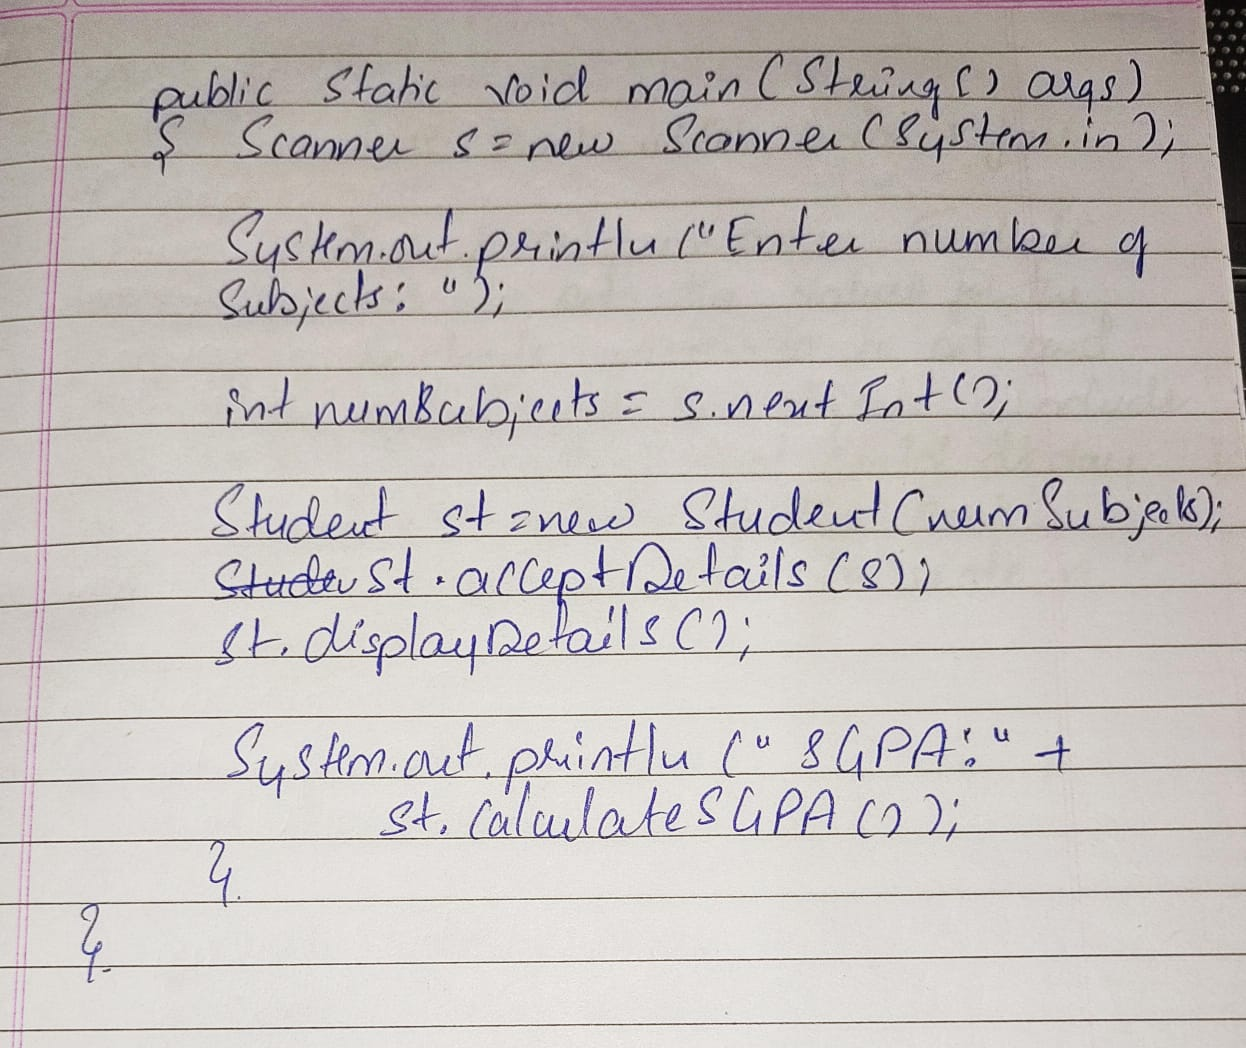 public static void main (String() args)
{ Scanner s = new Scanner (System.in);
System.out.println ("Enter number of
Subjects: ");
int numSubjects = s.next Int();
Student st = new Student (numSubjects);
Stude st.acceptDetails (s);
st.displayDetails();
System.out.println (" SGPA: " +
st.calculateSGPA());
}
}